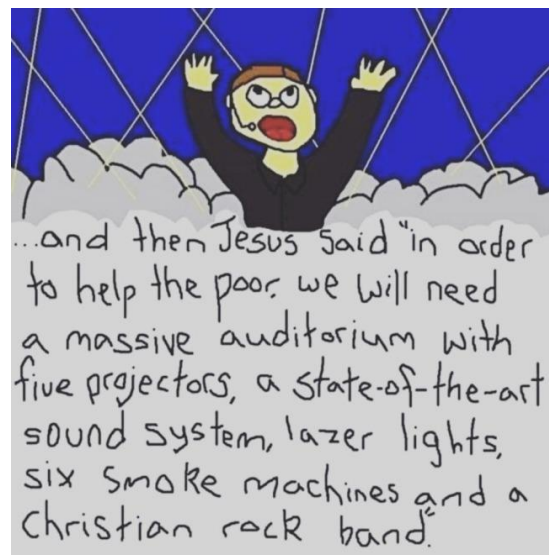 ...and then Jesus said "in order
to help the poor, we will need
a massive auditorium with
five projectors, a state-of-the-art
sound system, lazer lights,
six smoke machines and a
Christian rock band."